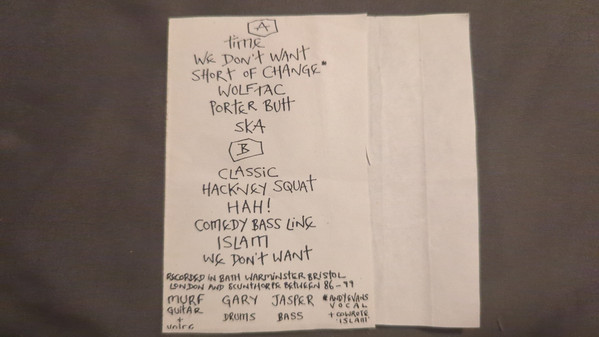 A
TIME
WE DON'T WANT
SHORT OF CHANGE*
WOLFTAC
PORTER BUTT
SKA
B
CLASSIC
HACKNEY SQUAT
HAH!
COMEDY BASS LINE
ISLAM
WE DON'T WANT
RECORDED IN BATH WARMINSTER BRISTOL
LONDON AND SCUNTHORPE BETWEEN 86-99
MURF GARY JASPER *ANDY EVANS
GUITAR DRUMS BASS VOCAL
+ + COWROTE
'ISLAM'